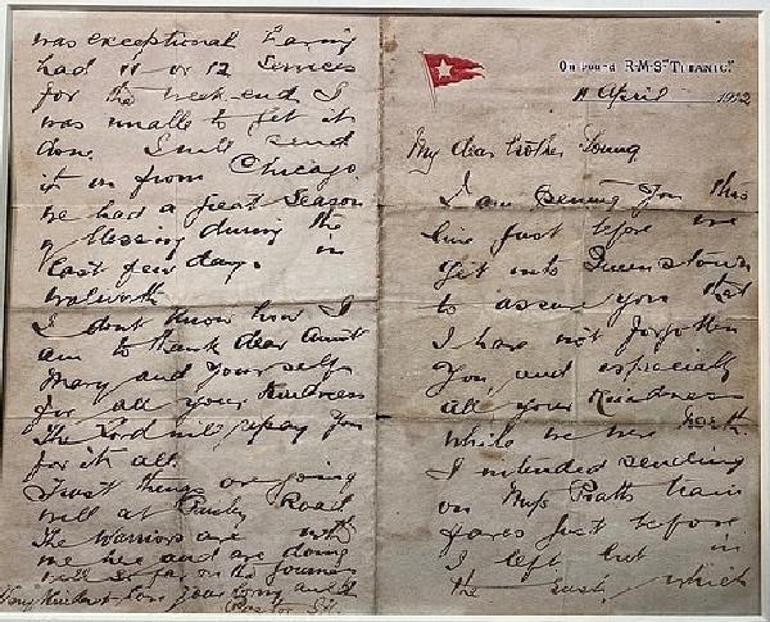 On board R·M·S "TITANIC".
11 April 1912
My dear brother Young
I am penning you this
line just before we
get into Queenstown
to assure you that
I have not forgotten
you and especially
all your kindness
while we were North.
I intended sending
on Miss Pratts train
fares just before
I left but in
the rush which
was exceptional having
had 11 or 12 services
for the week-end I
was unable to get it
done. I will send
it on from Chicago.
We had a great season
of blessing during the
last few days in
Walworth
I dont know how I
am to thank dear Aunt
Mary and yourself
for all your kindness
The Lord will repay you
for it all.
Trust things are going
well at Paisley Road
The Warriors are with
me here and are doing
well so far on the journey
Very kindest love your loving auld
Pastor J.H.